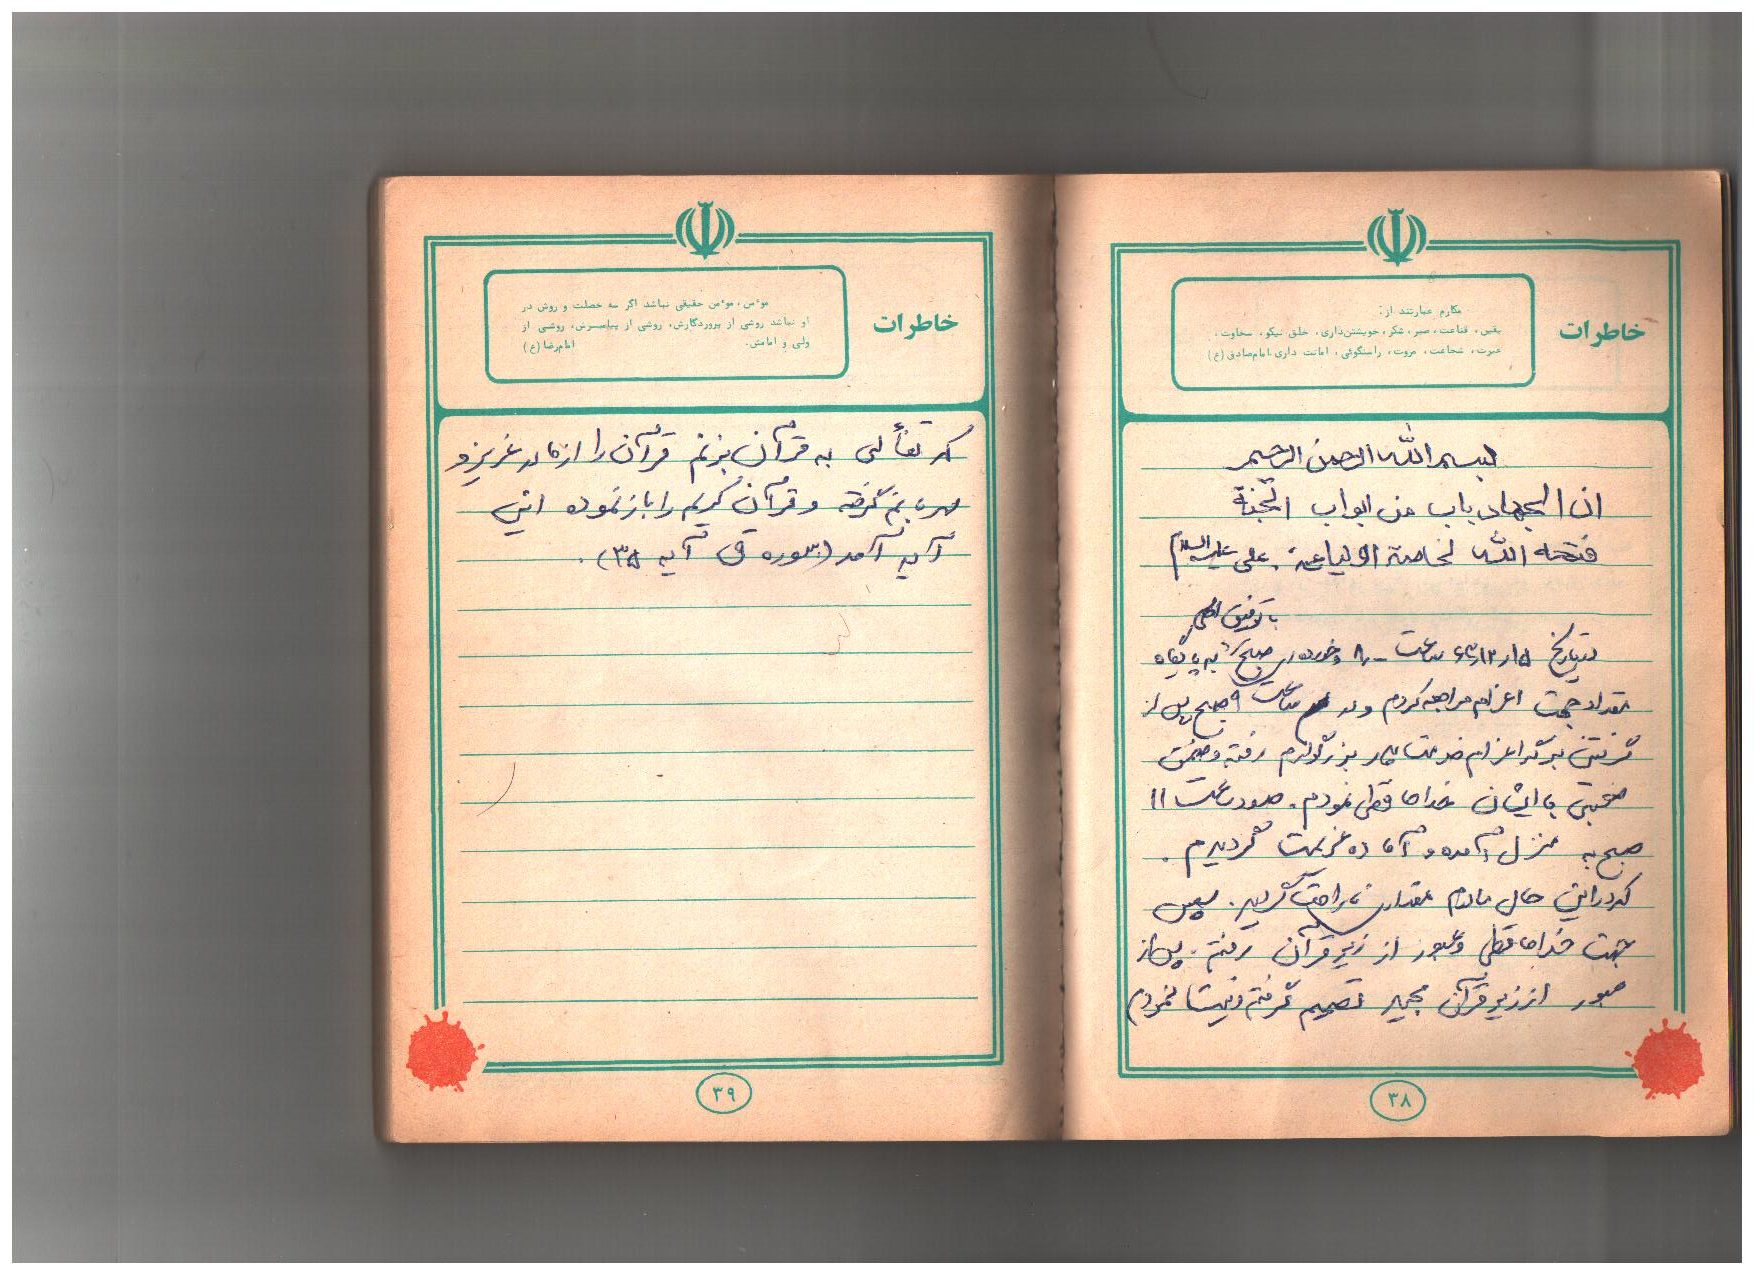 خاطرات
مکارم عبارتند از:
یقین، قناعت، صبر، شکر، خویشتن‌داری، خلق نیکو، سخاوت،
غیرت، شجاعت، مروت، راستگوئی، امانت داری. امام صادق (ع)
بسم الله الرحمن الرحیم
ان الجهاد باب من ابواب الجنة
فتحه الله لخاصة اولیائه. علی علیه السلام
با توفیق الهی
در تاریخ ساعت ۸ و خورده‌ای صبح به پایگاه
مقداد جهت اعزام مراجعه کردم و در ساعت ۹ صبح پس از
گرفتن برگه اعزام خدمت پدر بزرگوارم رفته و ضمن
صحبتی با ایشان خداحافظی نمودم. حدود ساعت ۱۱
صبح به منزل آمده و آماده عزیمت گردیدم.
که در این حال مادرم مقداری ناراحت گردید. سپس
جهت خداحافظی و عبور از زیر قرآن رفتم. پس از
عبور از زیر قرآن مجید تصمیم گرفتم و نیت نمودم
۳۸
خاطرات
مؤمن، مؤمن حقیقی نباشد اگر سه خصلت و روش در
او نباشد روشی از پروردگارش، روشی از پیامبرش، روشی از
ولی و امامش. امام رضا (ع)
که تفألی به قرآن بزنم قرآن را از مادر عزیز و
گرفته و قرآن کریم را باز نموده این
آیه آمد (سوره ق آیه ۳۵).
۳۹